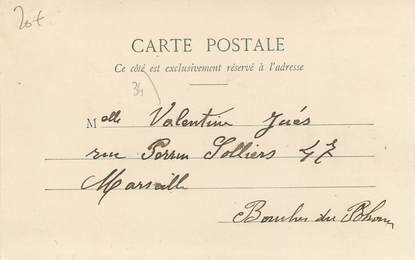 20f
CARTE POSTALE
Ce côté est exclusivement réservé à l'adresse
Melle Valentine Jués
rue Perrin Solliers 47
Marseille
Bouches du Rhone